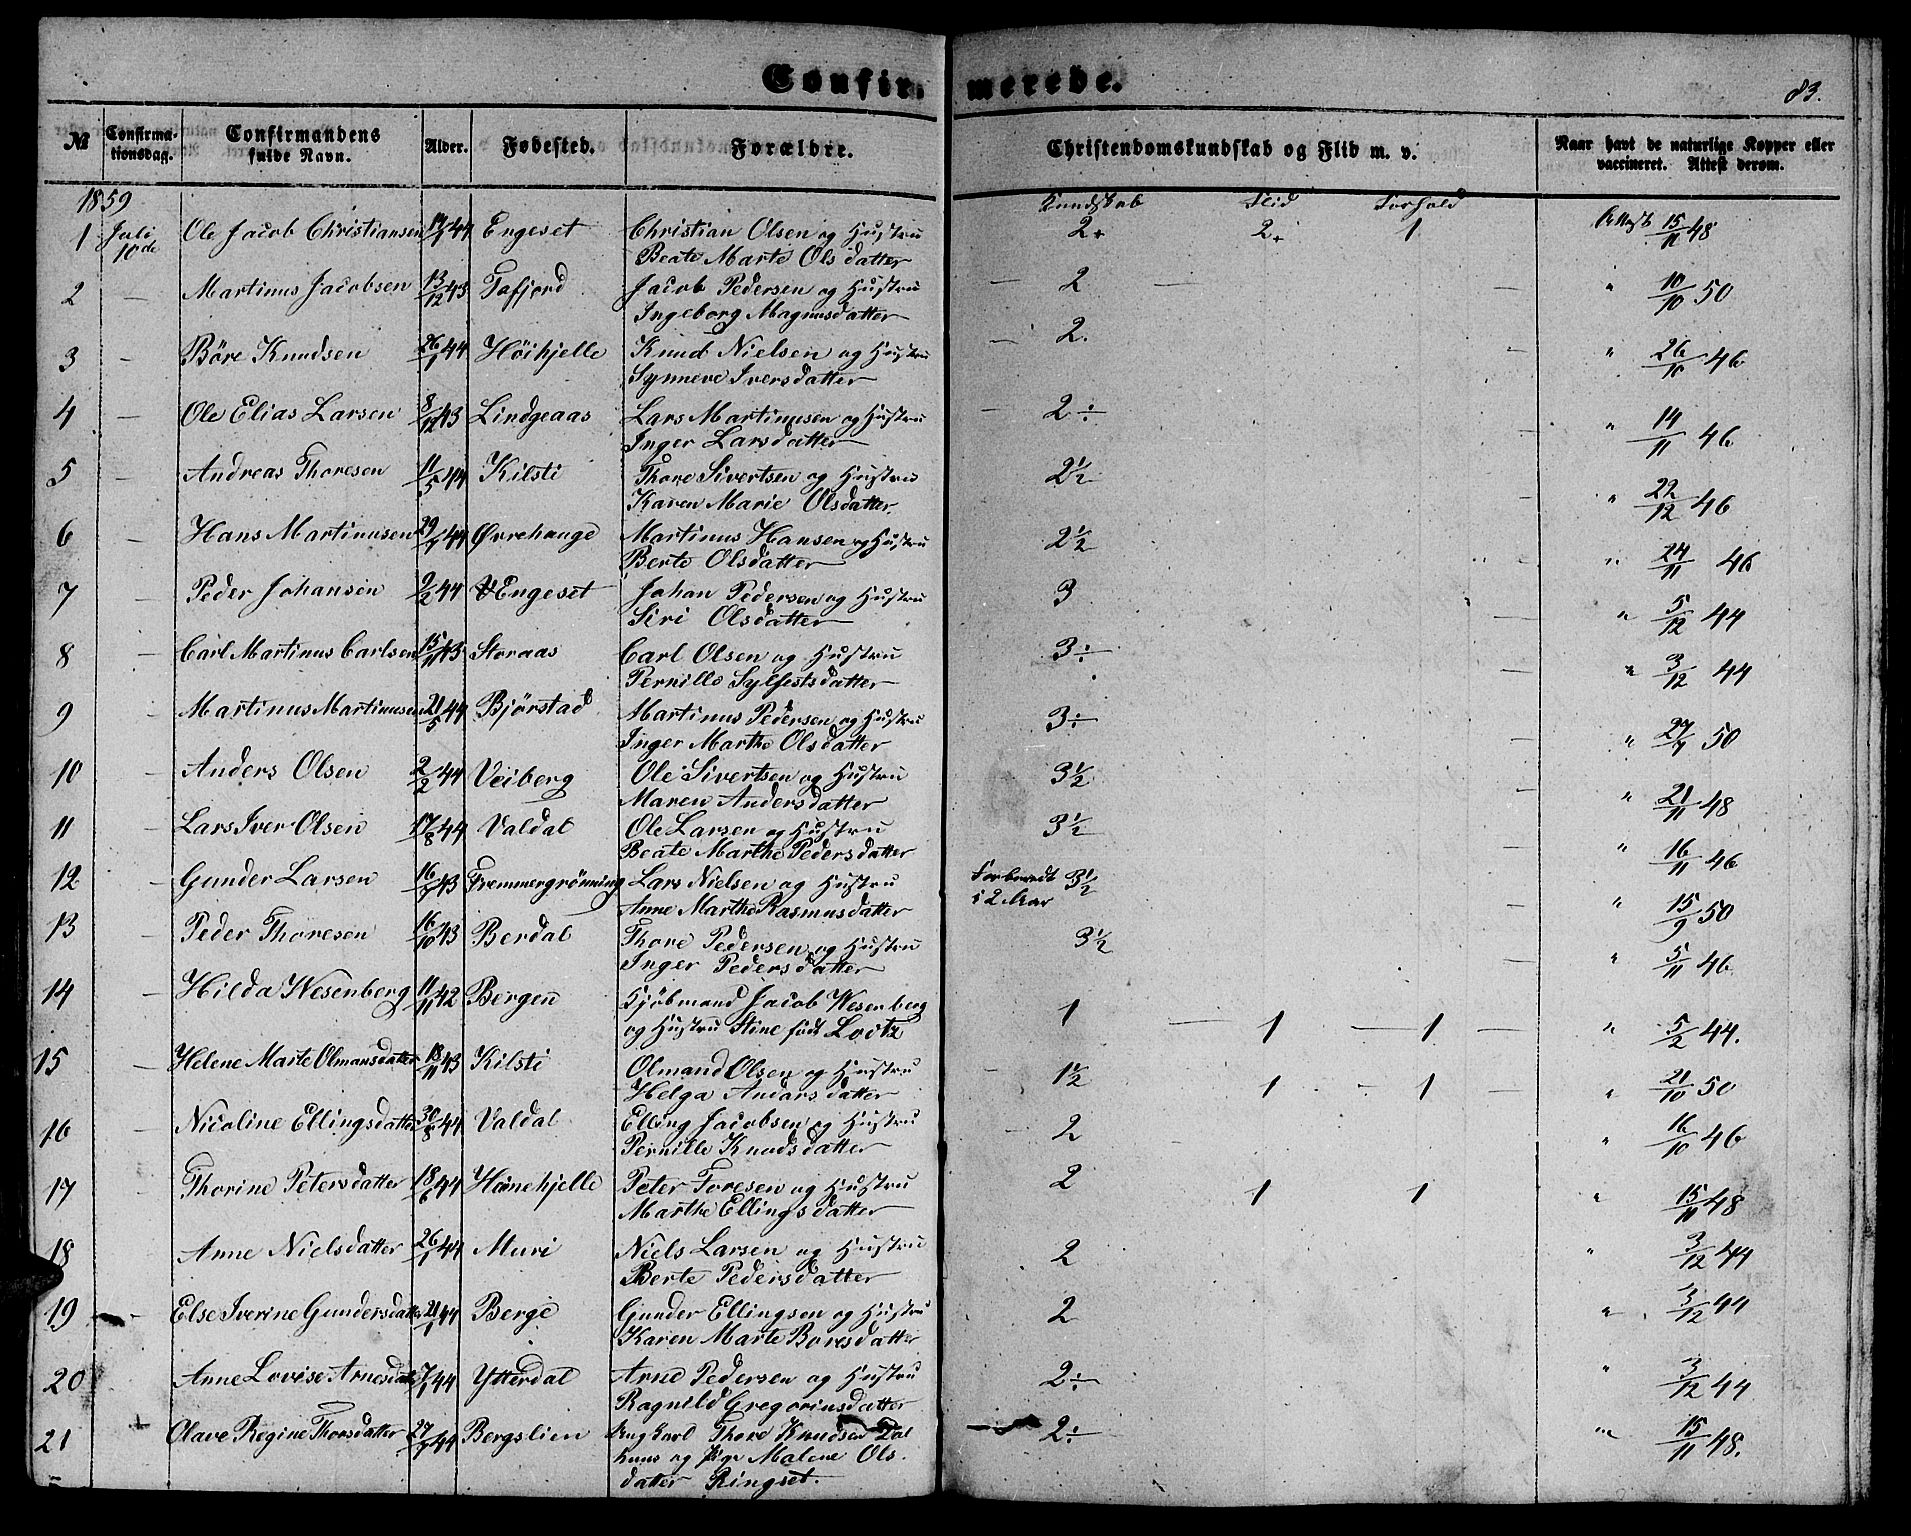 Confir- merede.
83.
№ Confirmationsdag. Confirmandens fulde Navn. Alder. Fødested. Forældre. Christendomskundskab og Flid m. v. Naar havt de naturlige Kopper eller vaccineret. Attest derom.
1859 Kundskab Flid Forhold
1 Juli 10de Ole Jacob Christiansen 44 Engeset Christian Olsen og Hustru 2+ 2+ 1 Attest 15/11 48
Beate Marte Olsdatter
2 — Martinus Jacobsen 13/12 43 Tafjord Jacob Pedersen og Hustru — 2 — — " 10/10 50
Ingeborg Magnusdatter
3 — Böre Knudsen 26/1 44 Höihjelle Knud Nielsen og Hustru — 2. — " 26/10 46
Synneve Iversdatter
4 — Ole Elias Larsen 8/12 43 Lindgeaas Lars Martinusen og Hustru — 2÷ — " 14/11 46
Inger Larsdatter
5 — Andreas Thoresen 11/5 44 Kilsti Thore Sivertsen og Hustru 2½ — " 22/12 46
Karen Marie Olsdatter
6 — Hans Martinusen 44 Øvrehauge Martinus Hansen og Hustru 2½ — " 24/11 46
Berte Olsdatter
7 — Peder Johansen 9/2 44 Engeset Johan Pedersen og Hustru 3 — " 5/12 44
Siri Olsdatter
8 — Carl Martinus Carlsen 15/11 43 Storaas Carl Olsen og Hustru 3÷ — " 3/12 44
Pernille Sylfestsdatter
9 — Martinus Martinusen 21/5 44 Bjørstad Martinus Pedersen og Hustru 3÷ — " 27/7 50
Inger Marthe Olsdatter
10 — Anders Olsen 2/2 44 Veiberg Ole Sivertsen og Hustru 3½ — " 21/11 48
Maren Andersdatter
11 Lars Iver Olsen 17/8 44 Valdal Ole Larsen og Hustru 3½ — " 16/11 46
Beate Marthe Pedersdatter
12 — Gunder Larsen 43 Fremmergrönning Lars Nielsen og Hustru Forberedt i 2 Aar 3½ — " 15/9 50
Anne Marthe Rasmusdatter
13 — Peder Thoresen 16/10 43 Berdal Thore Pedersen og Hustru 3½ — " 5/11 46
Inger Pedersdatter
14 — Hilda Wesenberg 11/11 42 Bergen Kjöbmand Jacob Wesenberg 1 — 1 — 1 — " 5/2 44.
og Hustru Stine født Lootz
15 — Helene Marte Olmansdatter 18/11 43 Kilsti Olmand Olsen og Hustru — 1½ 1 — 1 — " 21/10 50
Helga Andarsdatter
16 — Nicoline Ellingsdatter 30/8 44 Valdal Elling Jacobsen og Hustru — 2 " 16/10 46
Pernille Knudsdatter
17 — Thorine Petersdatter 18/6 44 Hönehjelle Peter Foresen og Hustru 2 1 1 " 15/11 48
Marthe Ellingsdatter
18 Anne Nielsdatter 26/1 44 Muri Niels Larsen og Hustru 2 " 3/12 44
Berte Pedersdatter
19 — Else Iverine Gundersdatter 21/1 44 Berge Gunder Ellingsen og Hustru 2 " 3/12 44
Karen Marte Boresdatter
20 Anne Lovise Arnesdatter 7/1 44 Ytterdal Arne Pedersen og Hustru 2÷ " 3/12 44
Ragnild Gregoriusdatter
21 Olave Regine Thorsdatter 44 Bergslien Ungkarl Thore Knudsen Dal 2÷ " 15/11 48.
og Pige Malene Ols
datter Ringset.